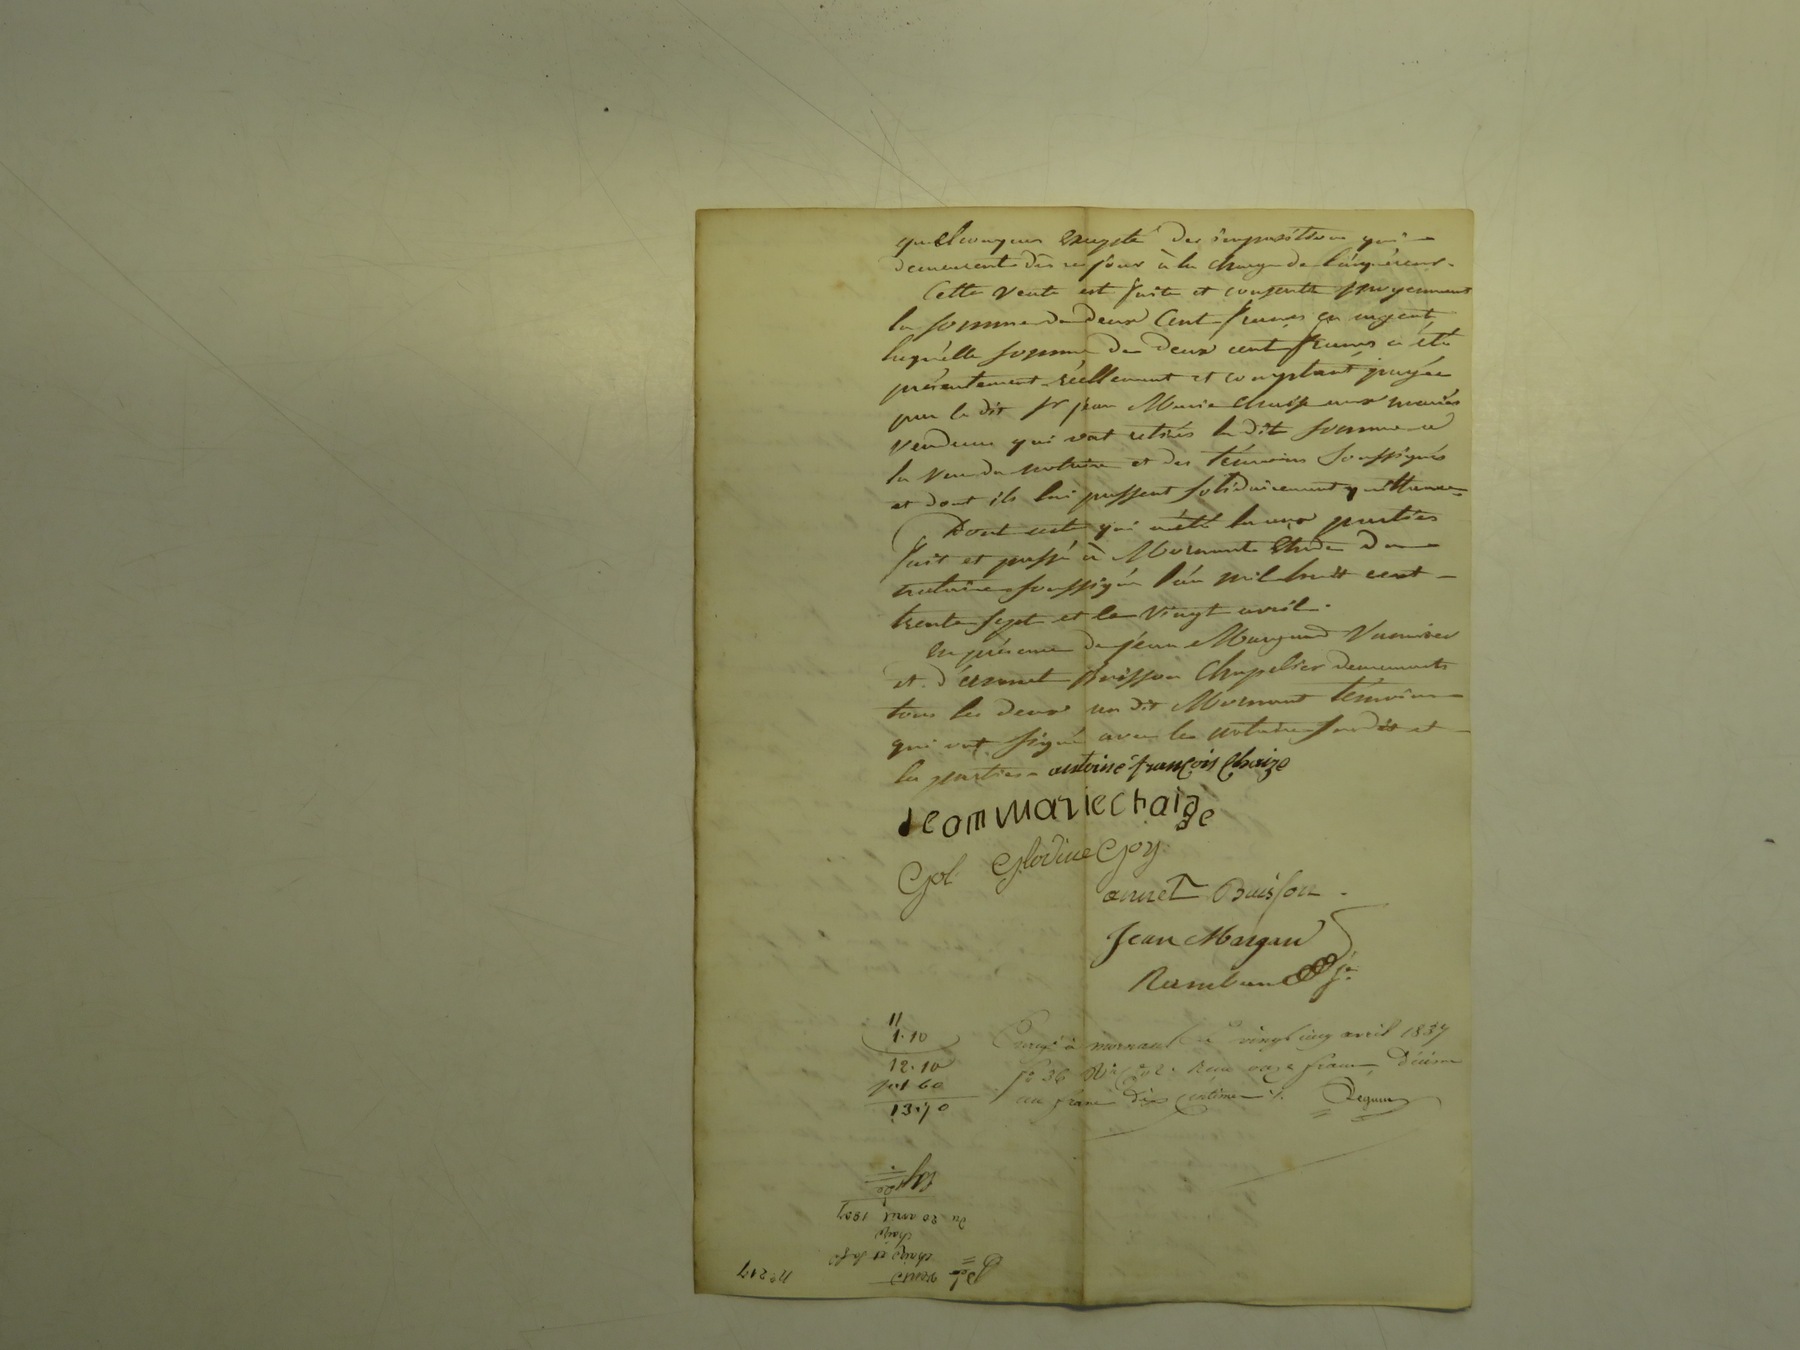 quelconques Excepté des impositions qui
demeurent dès ce jour à la charge de l'acquéreur.
Cette vente est faite et consentie moyennant
la somme de deux Cent francs en argent,
laquelle somme de deux cent francs a été
présentement réellement et comptant payée
par le dit Sr jean Marie chaize aux mariés
vendeurs qui ont retirés la dite somme a
la vue du notaire et des témoins soussignés
et dont ils lui passent solidairement quittance
Dont acte qui a été lu aux parties
fait et passé à Mornant Etude du
notaire soussigné l'an mil huit cent
trente sept et le vingt avril.
En présence de jean Margand
et d'annet Buisson Chapelier demeurants
tous les deux au dit Mornant témoins
qui ont signé avec le notaire susdit et
les parties antoine françois Chaize
Jean Marie chaize
Glodine Goy
annet Buisson
Jean Margan
Rambaud Je
11
1.10
12.10
1.60
13.70
mornant le vingt cinq avril 1837
fo 36 Ro Ce 2. Reçu onze francs, Décime
un franc Dix Centimes
du 20 avril 1837
chaize
vente
no 217